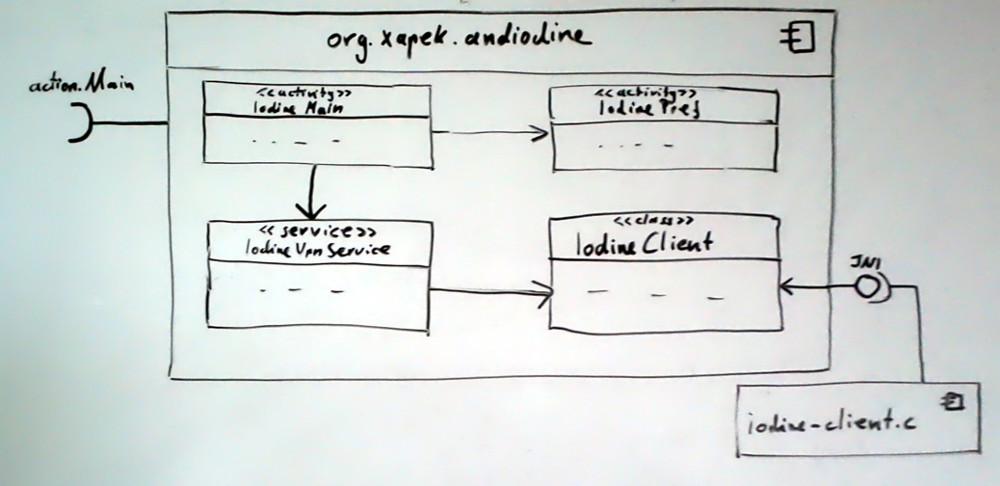 org.xapek.andiodine
action.Main
<<activity>>
Iodine Main
<<activity>>
Iodine Pref
<<service>>
Iodine Vpn Service
<<class>>
Iodine Client
JNI
iodine-client.c